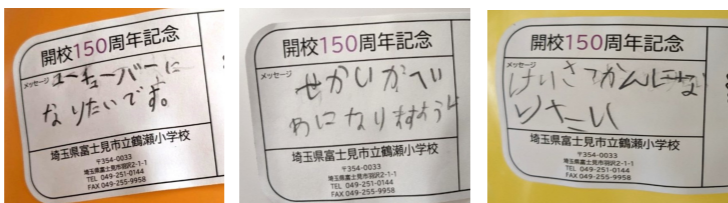 開校150周年記念
メッセージ
ユーチューバーに
なりたいです。
埼玉県富士見市立鶴瀬小学校
〒354-0033
埼玉県富士見市羽沢2-1-1
TEL 049-251-0144
FAX 049-255-9958
開校150周年記念
メッセージ
せかいがへい
わになりますように
埼玉県富士見市立鶴瀬小学校
〒354-0033
埼玉県富士見市羽沢2-1-1
TEL 049-251-0144
FAX 049-255-9958
開校150周年記念
メッセージ
けいさつかんにな
りたい
埼玉県富士見市立鶴瀬小学校
〒354-0033
埼玉県富士見市羽沢2-1-1
TEL 049-251-0144
FAX 049-255-9958